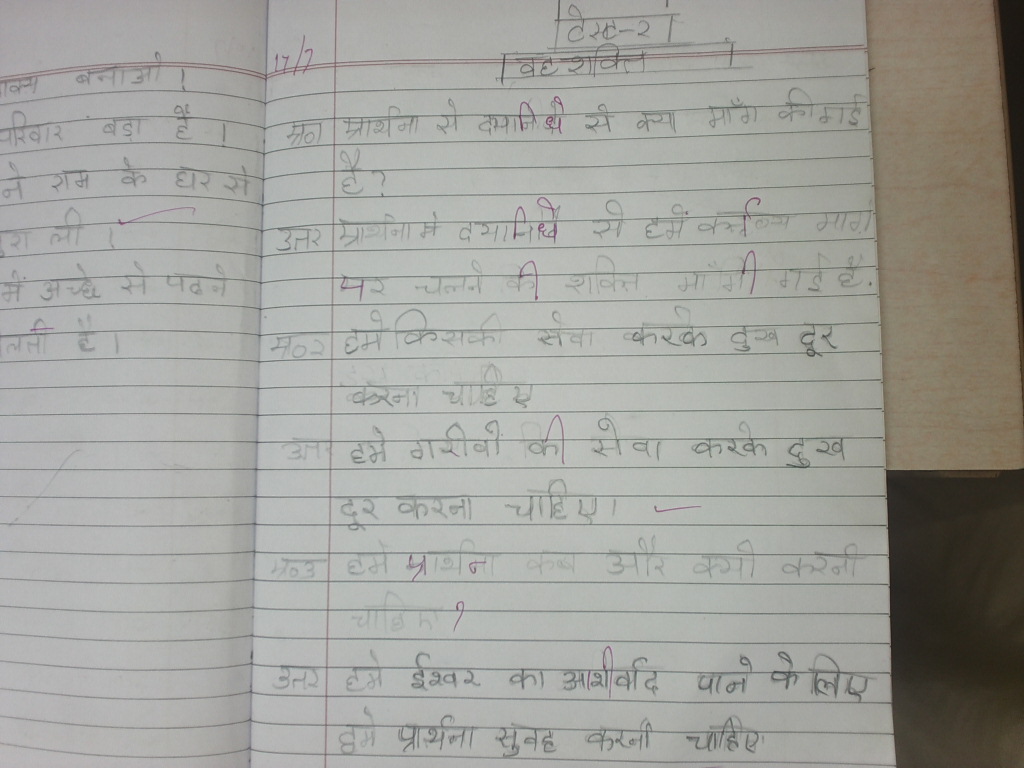 टेस्ट-२
वह शक्ति
17/7
वाक्य बनाओ ।
परिवार बड़ा है ।
ने राम के घर से
ली ।
में अच्छे से पढने
है ।
प्र०१ प्रार्थना से दयानिधे से क्या माँग की गई
है ?
उत्तर प्रार्थना मे दयानिधे से हमें कर्त्तव्य मार्ग
पर चलने की शक्ति माँगी गई है .
प्र०२ हमे किसकी सेवा करके दुख दूर
करना चाहिए
उत्तर हमे गरीबों की सेवा करके दुख
दूर करना चाहिए ।
प्र०३ हमे प्रार्थना कब और क्यों करनी
चाहिए ?
उत्तर हमे ईश्वर का आशीर्वाद पाने के लिए
हमे प्रार्थना सुबह करनी चाहिए